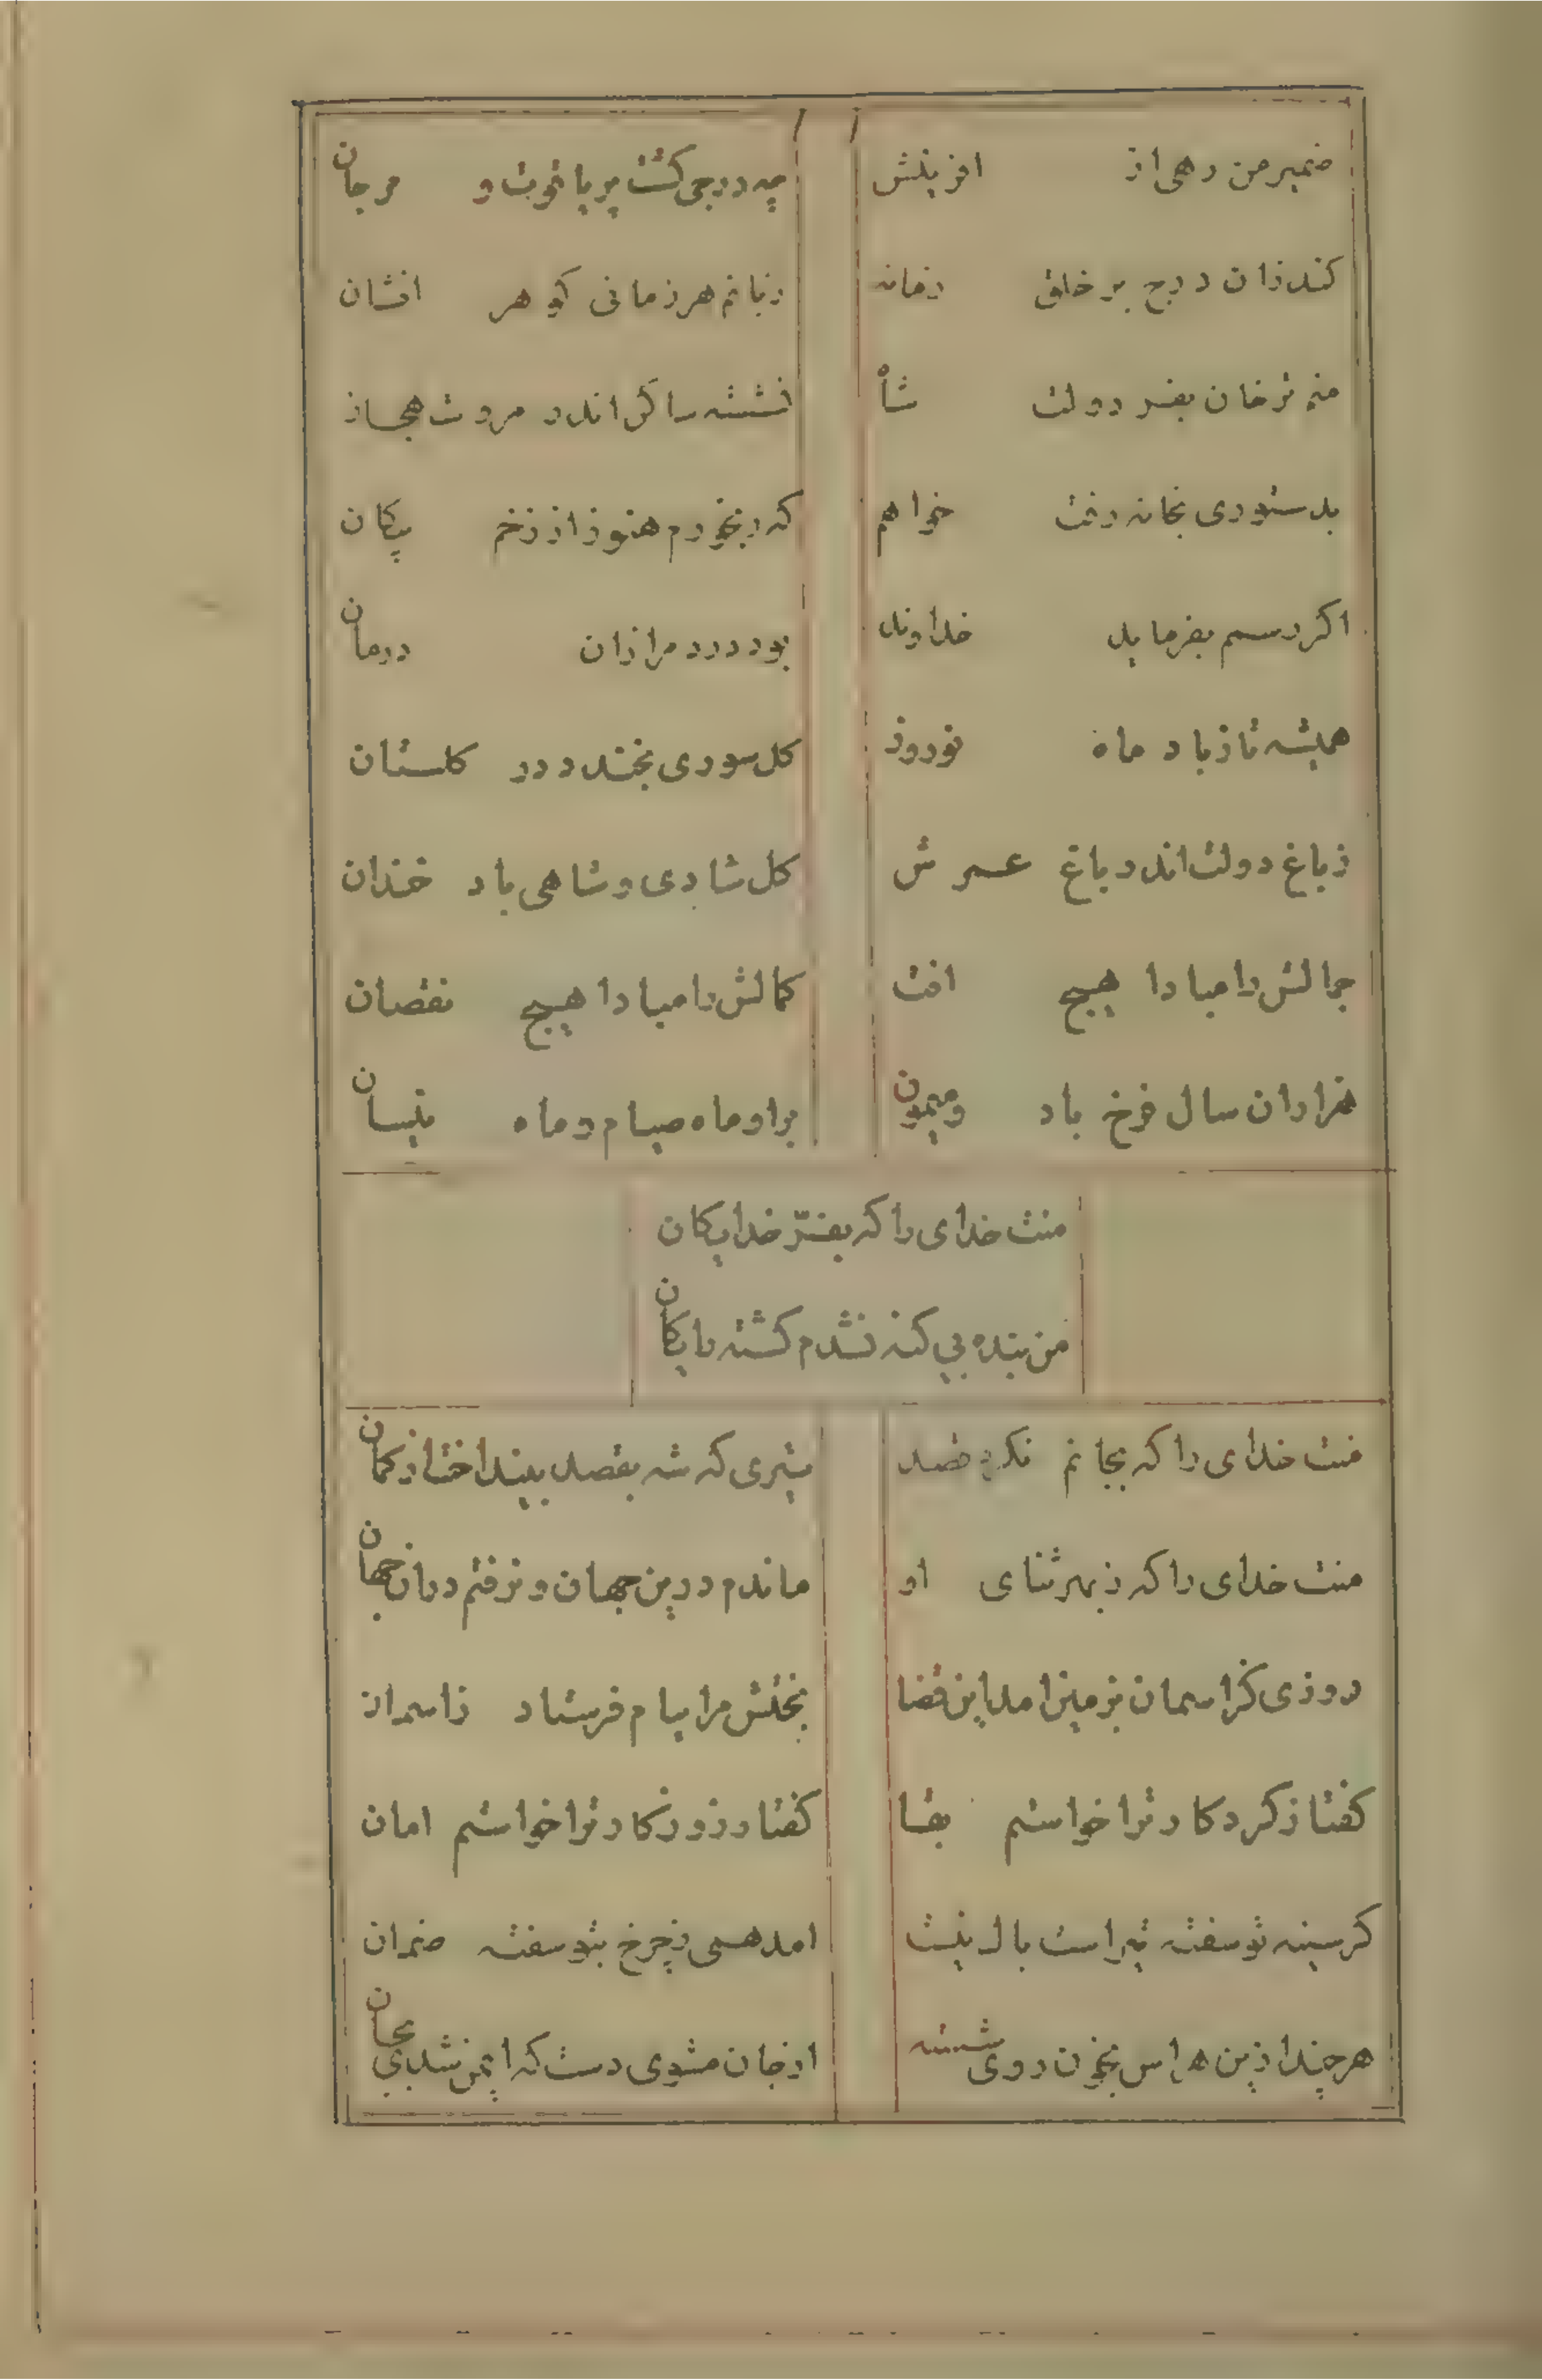 ضمیر من رهی از افرینش چه درجی کشت پر یاقوت و مرجان
کند زان درج بر خلق زمانه زبانم هر زمانی کوهر افشان
منم ترخان بفر دولت شاه نشسته ساکن اندر مروشهجان
بدستوری بخانه رفت خواهم که رنجورم هنوز از زخم پیکان
اکر رسمم بفرماید خداوند بود درد مرا زان درمان
همیشه تا ز باد ماه نوروز کل سوری بخندد در کلستان
ز باغ دولت اندر باغ عمرش کل شادی و شاهی باد خندان
جمالش را مبادا هیچ افت کمالش را مبادا هیچ نقصان
هزاران سال فرخ باد ومیمون براو ماه صیام و ماه نیسان
منت خدای را که بفرّ خدایکان
من بنده بی کنه نشدم کشته رایکان
منت خدای را که بجانم نکرد قصد تیری که شه بقصد بینداخت از کمان
منت خدای را که ز بهر ثنای او ماندم درین جهان و نرفتم دران جهان
روزی کز اسمان بزمین امد این قضا بختش مرا پیام فرستاد ز اسمان
کفتا ز کردکار ترا خواستم بقا کفتا ز روزکار ترا خواستم امان
کر سینه تو سفته تیر است باک نیست امد همی ز چرخ بتو سفته ضمان
هر چند ازین هراس بخون روی شسته از جان مشوی دست که ایمن شدی بجان